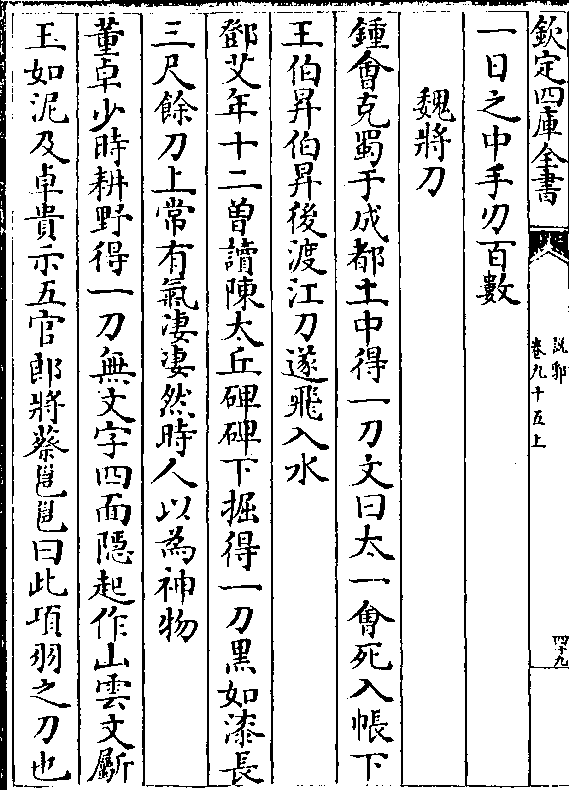 欽定四庫全書
說郛
卷九十五上
四十九
一日之中手刃百數
魏將刀
鍾會克蜀于成都土中得一刀文曰太一會死入帳下
王伯昇伯昇後渡江刀遂飛入水
鄧艾年十二曾讀陳太丘碑碑下掘得一刀黑如漆長
三尺餘刀上常有氣凄凄然時人以為神物
董卓少時耕野得一刀無文字四面隱起作山雲文斸
玉如泥及卓貴示五官郎將蔡邕邕曰此項羽之刀也